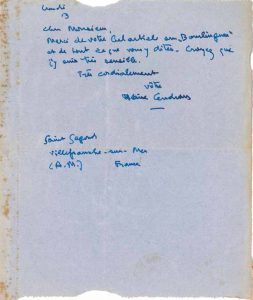 Lundi
13
Cher Monsieur,
Merci de votre bel article sur "Bourlinguer"
et de tout ce que vous y dites. Croyez que
j'y suis très sensible.
Très cordialement
vôtre
Blaise Cendrars
Saint Segond
Villefranche-sur-Mer
(A.M.) France